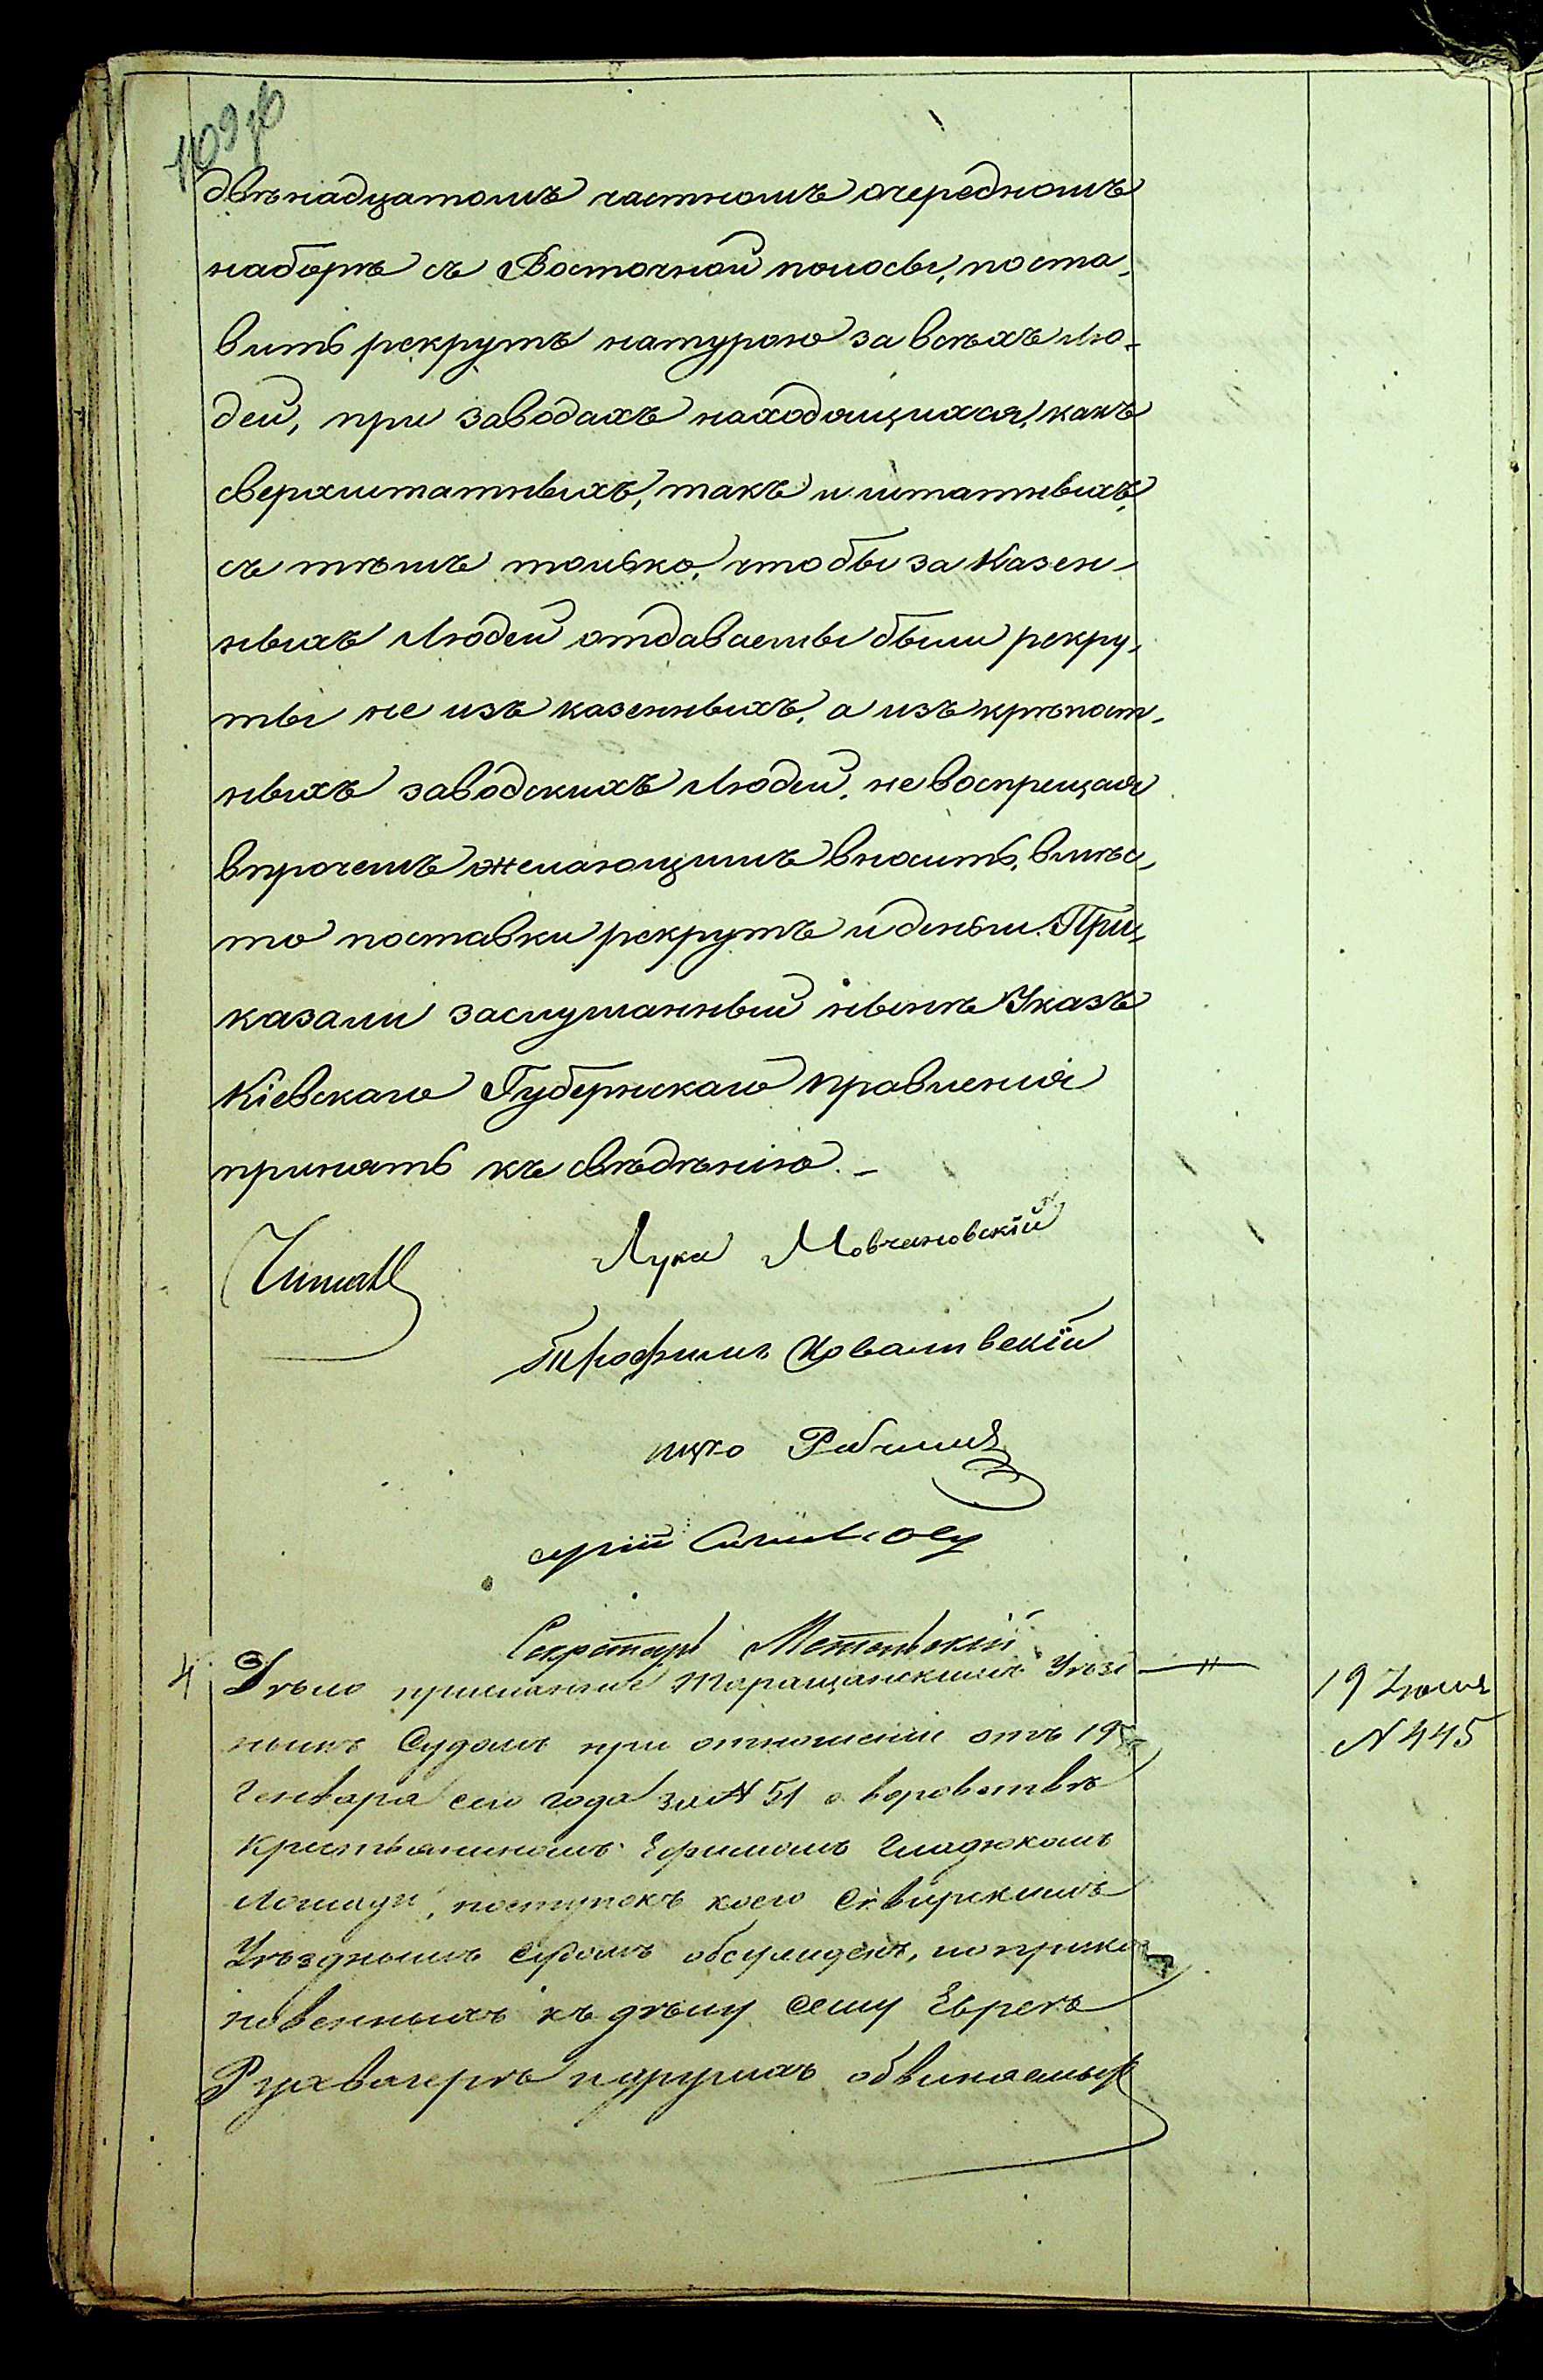 109 об
двѣнадцатомъ частномъ очередномъ
наборѣ съ Восточной полосы, поста-
вить рекрутъ натурою за всѣхъ лю-
дей, при заводахъ находящихся, какъ
сверхштатныхъ, такъ и штатныхъ,
съ тѣмъ только, чтобы за Казен-
ныхъ Людей отдаваемы были рекру-
ты не изъ казенныхъ, а изъ крѣпост-
ныхъ заводскихъ Людей, не воспрещая
впрочемъ желающимъ вносить, вмѣс-
то поставки рекрутъ и деньги. При-
казали заслушанный нынѣ Указъ
Кіевскаго Губернскаго правленія
принять къ свѣдѣнію. –
Лука Мовчановскій
Трофимъ Ковалевскій
Секретарь
4 Дѣло присланное Таращанскимъ Уѣзд
нымъ Судомъ при отношеніи отъ 19
Генваря сего года за N 51 о воровствѣ
Крестьяниномъ Ефимомъ Гладюкомъ
Лошади, поступокъ коего Сквирскимъ
Уѣзднымъ Судомъ обсужденъ, но прико
новенныхъ къ дѣлу сему Евреѣ
и другихъ обвиняемых
19 Іюля
N 445